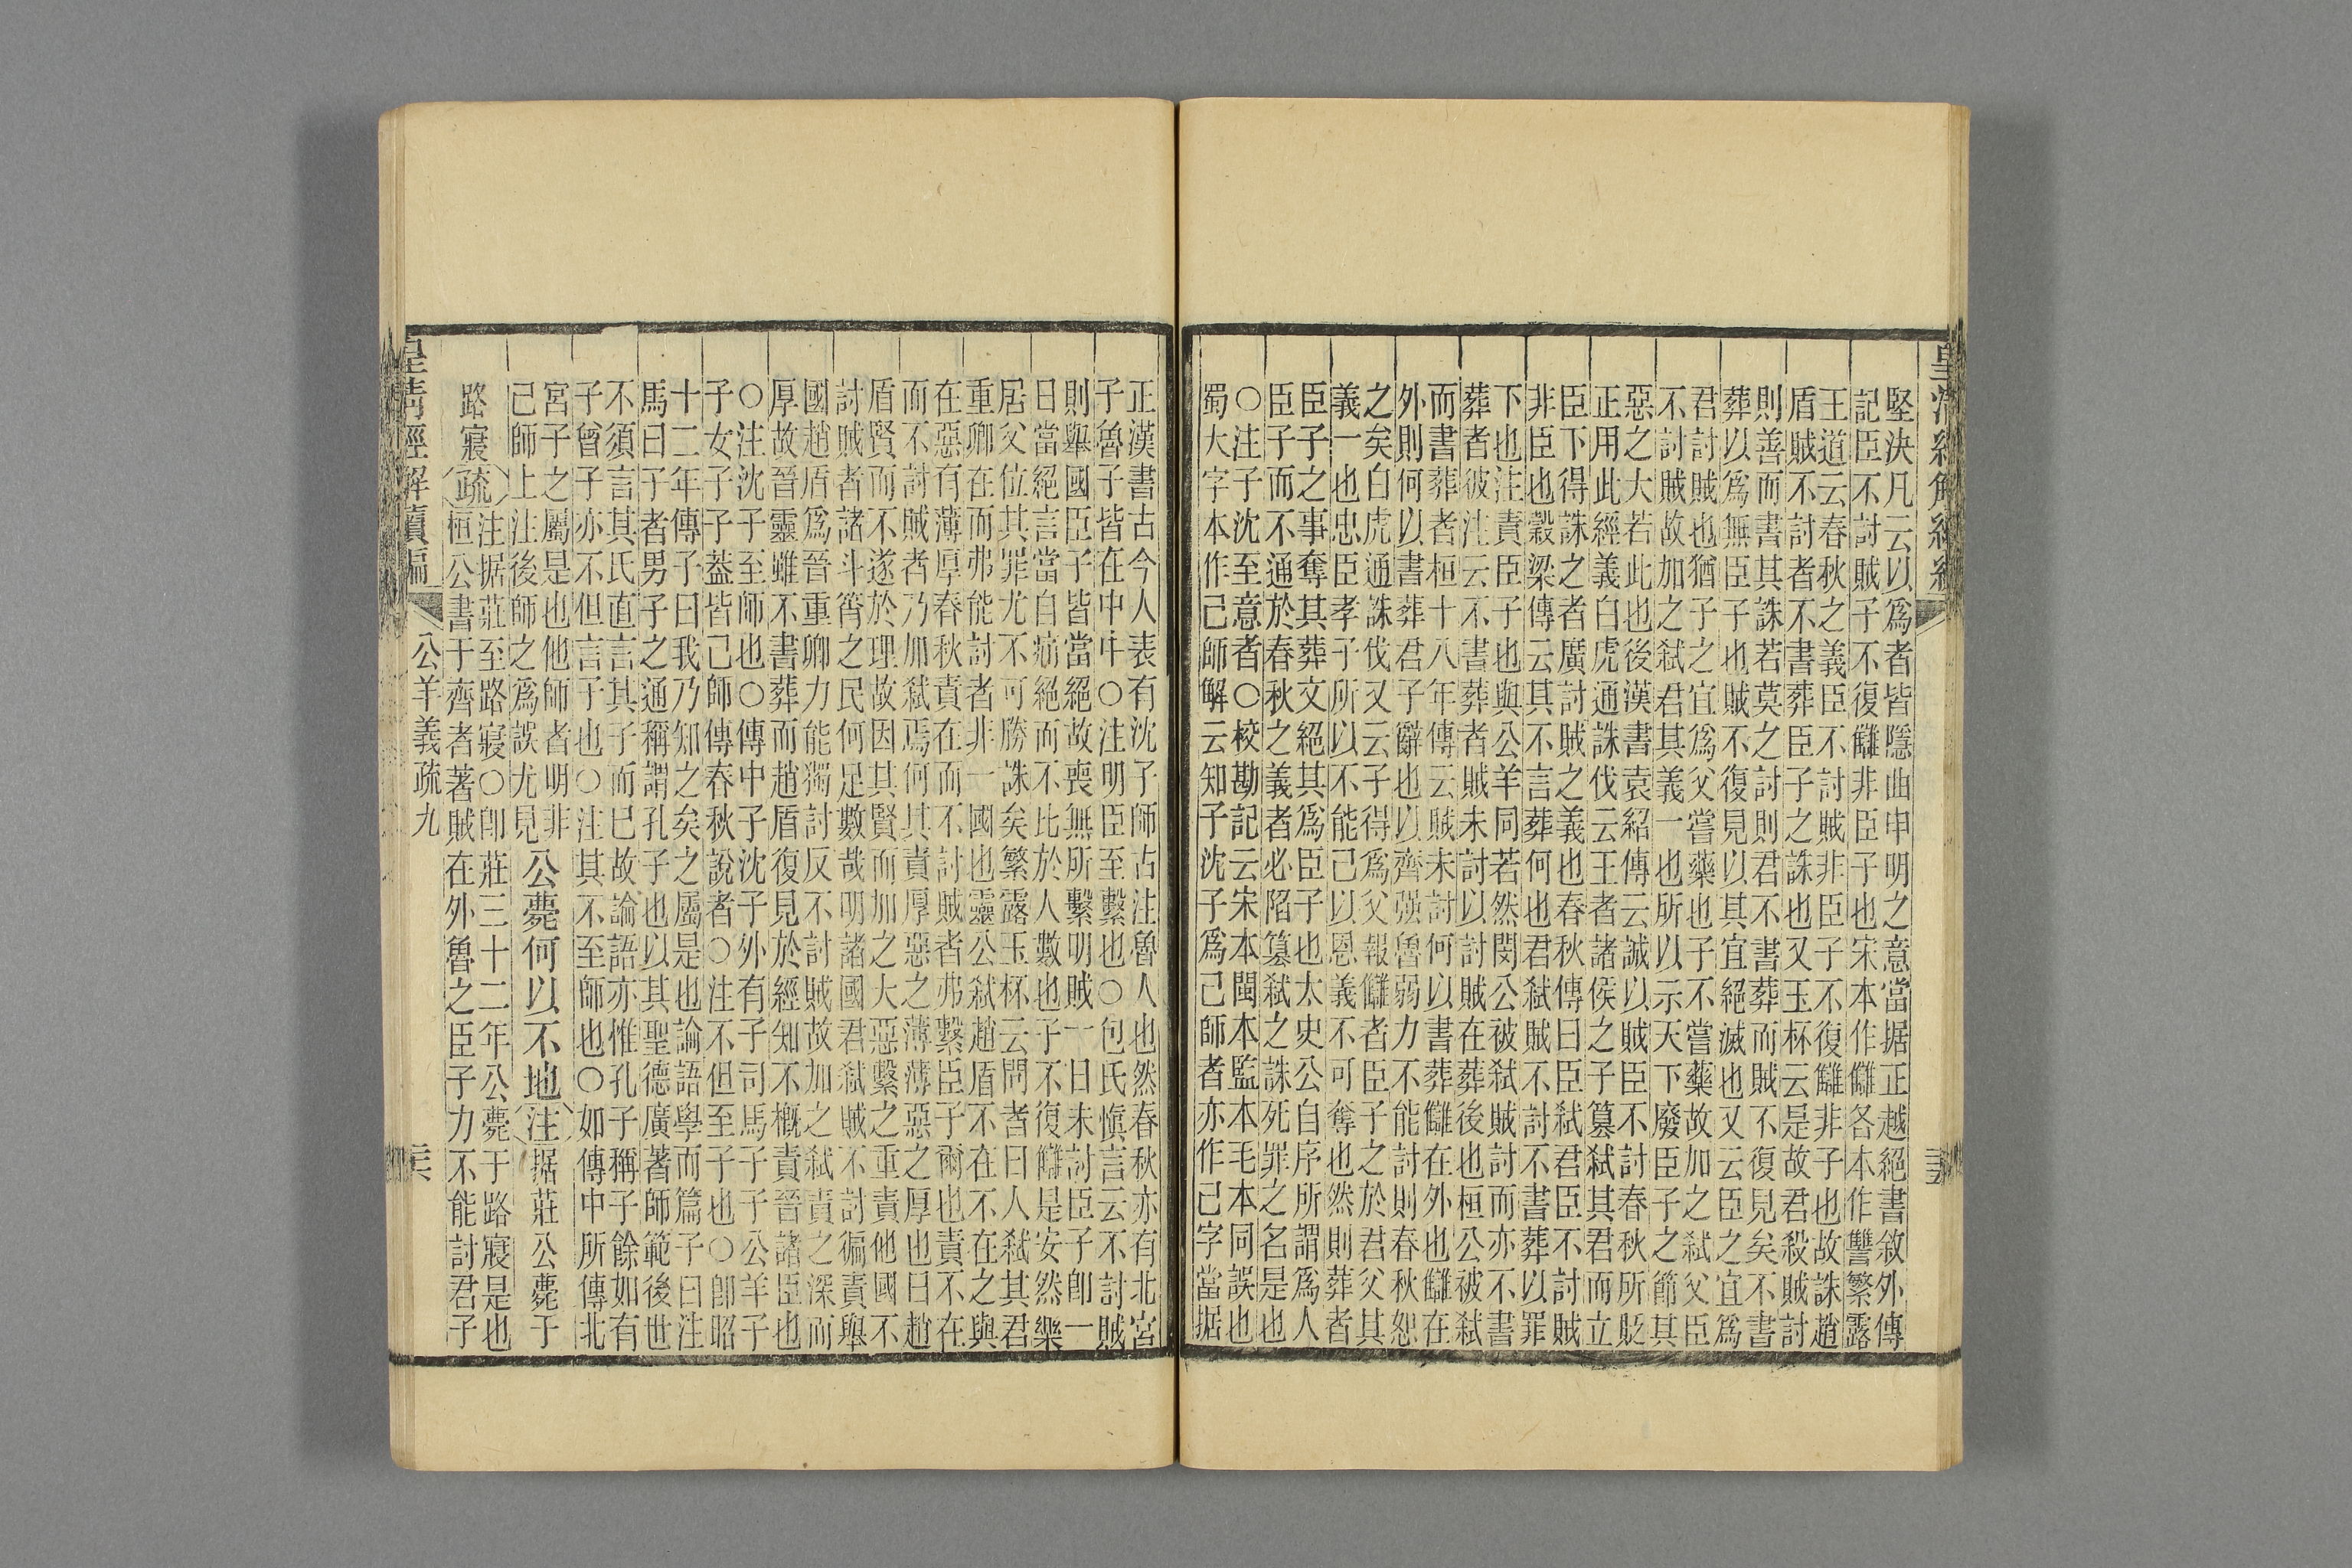 堅決凡云以爲者皆隱曲申明之意當据正越絕書敘外傳
記臣不討賊子不復讎非臣子也宋本作讎各本作讐繁露
王道云春秋之義臣不討賊非臣子不復讎非子也故誅趙
盾賊不討者不書葬臣子之誅也又玉杯云是故君殺賊討
則善而書其誅若莫之討則君不書葬而賊不復見矣不書
葬以爲無臣子也賊不復見以其宜絕滅也又云臣之宜爲
君討賊也猶子之宜爲父嘗藥也子不嘗藥故加之弒父臣
不討賊故加之弒君其義一也所以示天下廢臣子之節其
惡之大若此也後漢書袁紹傳云誠以賊臣不討春秋所貶
正用此經義白虎通誅伐云王者諸侯之子篡弒其君而立
臣下得誅之者廣討賊之義也春秋傳曰臣弒君臣不討賊
非臣也穀梁傳云其不言葬何也君弒賊不討不書葬以罪
下也注責臣子也與公羊同若然閔公被弒賊討而亦不書
葬者彼注云不書葬者賊未討以討賊在葬後也桓公被弒
而書葬者桓十八年傳云賊未討何以書葬讎在外也讎在
外則何以書葬君子辭也以齊强魯弱力不能討則春秋恕
之矣白虎通誅伐又云子得爲父報讎者臣子之於君父其
義一也忠臣孝子所以不能已以恩義不可奪也然則葬者
臣子之事奪其葬文絕其爲臣子也太史公自序所謂爲人
臣子而不通於春秋之義者必陷篡弒之誅死罪之名是也
〇注子沈至意者〇校勘記云宋本閩本監本毛本同誤也
蜀大字本作己師解云知子沈子爲己師者亦作己字當据
正漢書古今人表有沈子師古注魯人也然春秋亦有北宮
子魯子皆在中中〇注明臣至繫也〇包氏愼言云不討賊
則舉國臣子皆當絕故喪無所繫明賊一日未討臣子卽一
日當絕言當自痛絕而不比於人數也子不復讎是安然樂
居父位其罪尤不可勝誅矣繁露玉杯云問者曰人弒其君
重卿在而弗能討者非一國也靈公弒趙盾不在不在之與
在惡有薄厚春秋責在而不討賊者弗繫臣子爾也責不在
而不討賊者乃加弒焉何其責厚惡之薄薄惡之厚也曰趙
盾賢而不遂於理故因其賢而加之大惡繫之重責他國不
討賊者諸斗筲之民何足數哉明諸國君弒賊不討徧責舉
國趙盾爲晉重卿力能獨討反不討賊故加之弒責之深而
厚故晉靈雖不書葬而趙盾復見於經知不槪責晉諸臣也
〇注沈子至師也〇傳中子沈子外有子司馬子子公羊子
子女子子葢皆己師傳春秋說者〇注不但至子也〇卽昭
十二年傳子曰我乃知之矣之屬是也論語學而篇子曰注
馬曰子者男子之通稱謂孔子也以其聖德廣著師範後世
不須言其氏直言其子而已故論語亦惟孔子稱子餘如有
子曾子亦不但言子也〇注其不至師也〇如傳中所傳北
宮子之屬是也他師者明非
己師上注後師之爲誤尤見
公薨何以不地注据莊公薨于
路寢疏
注据莊至路寢〇卽莊三十二年公薨于路寢是也
桓公書于齊者著賊在外魯之臣子力不能討君子
皇清經解續編
公羊義疏九